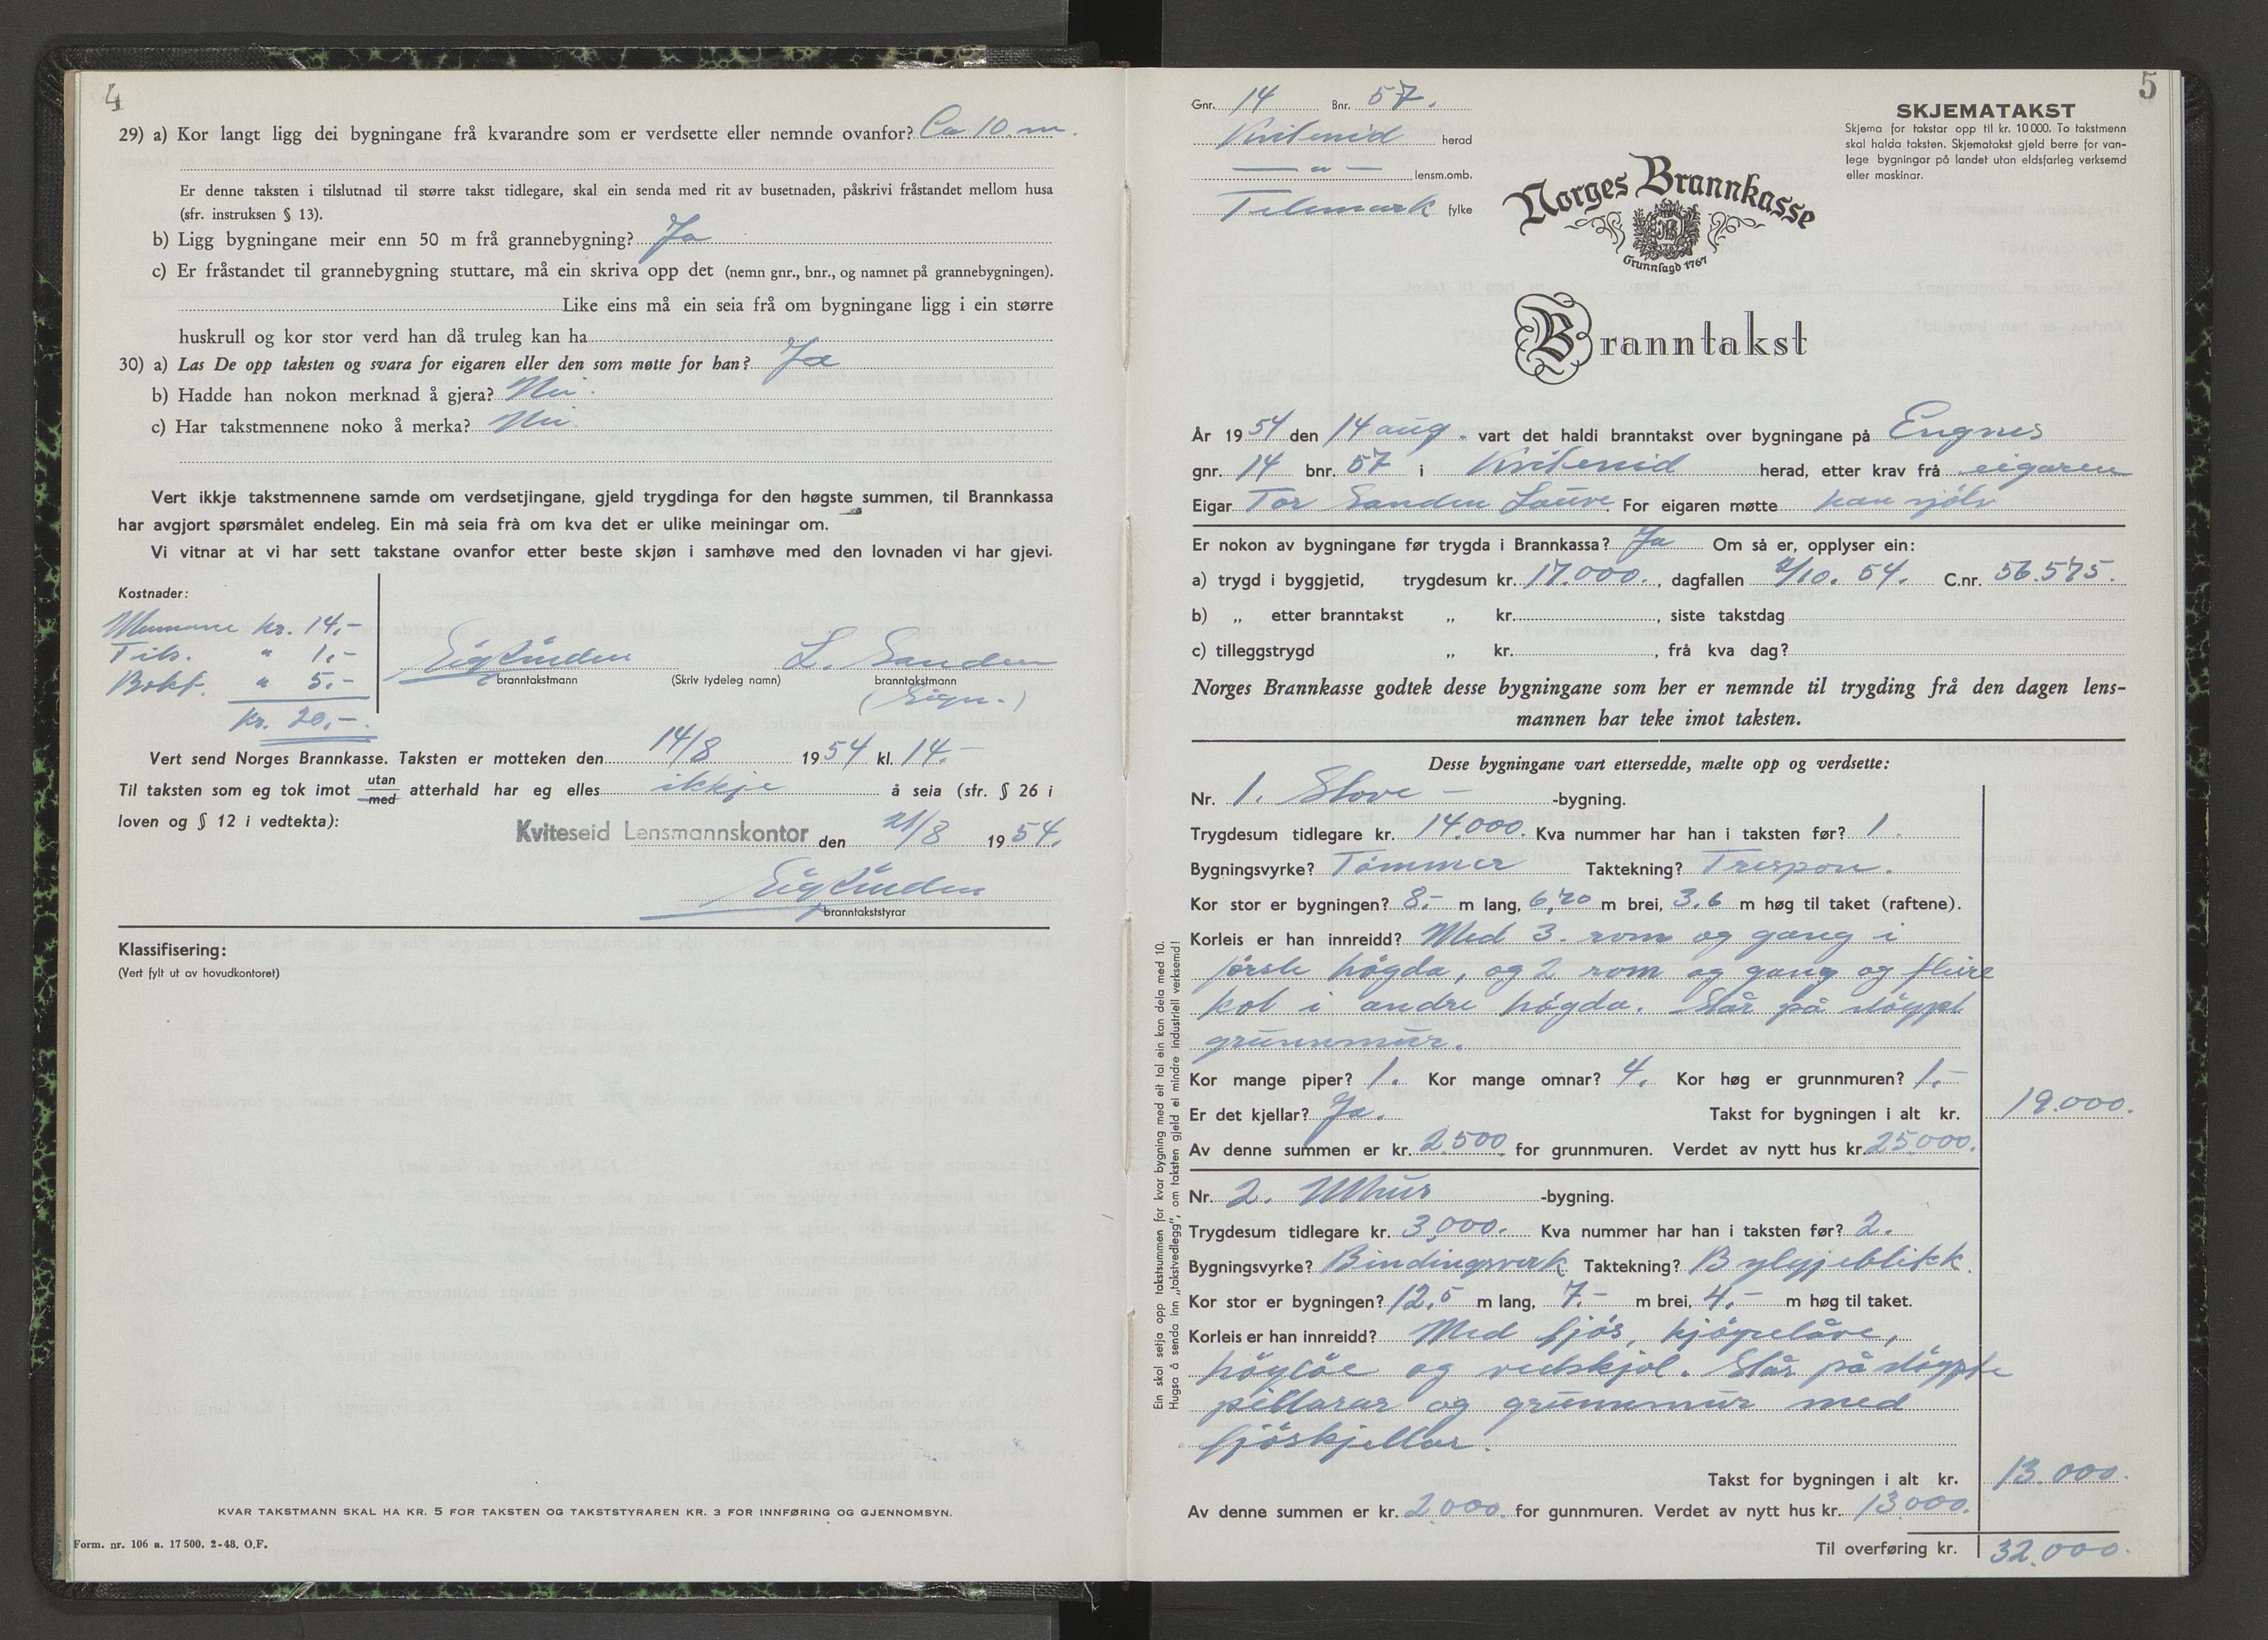 4
29) a) Kor langt ligg dei bygningane frå kvarandre som er verdsette eller nemnde ovanfor? Ca 10 m.
Er denne taksten i tilslutnad til større takst tidlegare, skal ein senda med rit av busetnaden, påskrivi fråstandet mellom husa
(sfr. instruksen § 13).
b) Ligg bygningane meir enn 50 m frå grannebygning? Ja
c) Er fråstandet til grannebygning stuttare, må ein skriva opp det (nemn gnr., bnr., og namnet på grannebygningen).
Like eins må ein seia frå om bygningane ligg i ein større
huskrull og kor stor verd han då truleg kan ha
30) a) Las De opp taksten og svara for eigaren eller den som møtte for han? Ja
b) Hadde han nokon merknad å gjera? Nei.
c) Har takstmennene noko å merka? Nei.
Vert ikkje takstmennene samde om verdsetjingane, gjeld trygdinga for den høgste summen, til Brannkassa
har avgjort spørsmålet endeleg. Ein må seia frå om kva det er ulike meiningar om.
Vi vitnar at vi har sett takstane ovanfor etter beste skjøn i samhøve med den lovnaden vi har gjevi.
Kostnader:
Mennene kr. 14,-
Tils. " 1,-
Bokf. " 5,-
kr. 20,-
Eig Linden L. Sanden
branntakstmann (Skriv tydeleg namn) branntakstmann
(Sign.)
Vert send Norges Brannkasse. Taksten er motteken den 14/8 1954 kl. 14.-
Til taksten som eg tok imot utan/med atterhald har eg elles ikkje å seia (sfr. § 26 i
loven og § 12 i vedtekta):
Kviteseid Lensmannskontor den 21/8 1954.
Eig Linden
branntakststyrar
Klassifisering:
(Vert fylt ut av hovudkontoret)
KVAR TAKSTMANN SKAL HA KR. 5 FOR TAKSTEN OG TAKSTSTYRAREN KR. 3 FOR INNFØRING OG GJENNOMSYN.
Form. nr. 106 a. 17 500. 2-48. O.F.
5
Gnr. 14 Bnr. 57.
Kviteseid herad
— " — lensm.omb.
Telemark fylke
SKJEMATAKST
Skjema for takstar opp til kr. 10 000. To takstmenn
skal halda taksten. Skjematakst gjeld berre for van-
lege bygningar på landet utan eldsfarleg verksemd
eller maskinar.
Norges Brannkasse
Grunnlagd 1767
Branntakst
År 1954 den 14 aug. vart det haldi branntakst over bygningane på Engnes
gnr. 14 bnr. 57 i Kviteseid herad, etter krav frå eigaren
Eigar Tor Sanden Lauve. For eigaren møtte han sjølv
Er nokon av bygningane før trygda i Brannkassa? Ja Om så er, opplyser ein:
a) trygd i byggjetid, trygdesum kr. 17.000., dagfallen 2/10. 54. C.nr. 56.575.
b) „ etter branntakst „ kr. , siste takstdag
c) tilleggstrygd „ kr. , frå kva dag?
Norges Brannkasse godtek desse bygningane som her er nemnde til trygding frå den dagen lens-
mannen har teke imot taksten.
Desse bygningane vart ettersedde, mælte opp og verdsette:
Nr. 1. Stove - -bygning.
Trygdesum tidlegare kr. 14.000. Kva nummer har han i taksten før? 1.
Bygningsvyrke? Tømmer Taktekning? Trespon.
Kor stor er bygningen? 8,- m lang, 6,70 m brei, 3,6 m høg til taket (raftene).
Korleis er han innreidd? Med 3. rom og gang i
første høgda, og 2 rom og gang og fleire
kot i andre høgda. Står på støypt
grunnmur.
Kor mange piper? 1. Kor mange omnar? 4. Kor høg er grunnmuren? 1.-
Er det kjellar? Ja. Takst for bygningen i alt kr. 19.000.
Av denne summen er kr. 2.500 for grunnmuren. Verdet av nytt hus kr. 25.000.
Nr. 2. Uthus -bygning.
Trygdesum tidlegare kr. 3.000. Kva nummer har han i taksten før? 2.
Bygningsvyrke? Bindingsverk Taktekning? Bylgjeblikk.
Kor stor er bygningen? 12,5 m lang, 7.- m brei, 4.- m høg til taket.
Korleis er han innreidd? Med fjós, kjøyrelåve,
høyløe og vedskjol. Står på støypte
pillarar og grunnmur med
fjóskjellar.
Takst for bygningen i alt kr. 13.000.
Av denne summen er kr. 2.000. for gunnmuren. Verdet av nytt hus kr. 13.000.
Til overføring kr. 32.000.
Ein skal seja opp takstsummen for kvar bygning med eit tal ein kan dela med 10.
Hugsa å senda inn „takstvedlegg", om taksten gjeld ei mindre industriell verksemd!